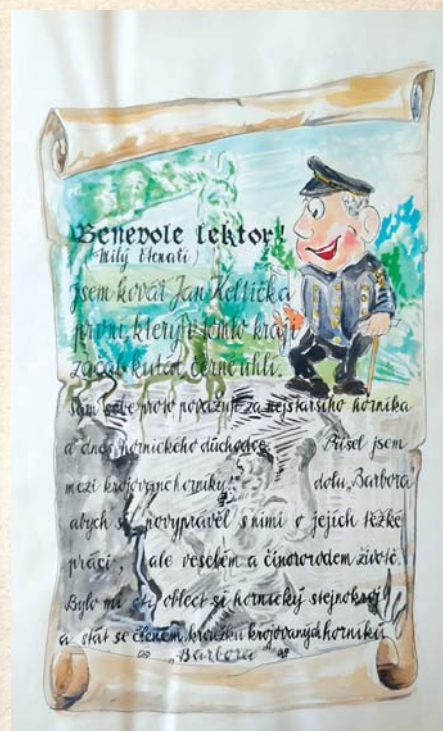 Benevole lektor!
(Milý čtenáři)
jsem kovář Jan Keltička
první, který v tomto kraji
začal kutat černé uhlí.
Sám sebe proto považuji za nejstaršího horníka
a dnes hornického důchodce. Přišel jsem
mezi krojované horníky dolu „Barbora
abych si povyprávěl s nimi o jejich těžké
práci, ale veselém a činorodem životě.
Bylo mi ctí obléct si hornický stejnokroj
a stát se členem kroužku krojovaných horníků
„Barbora"